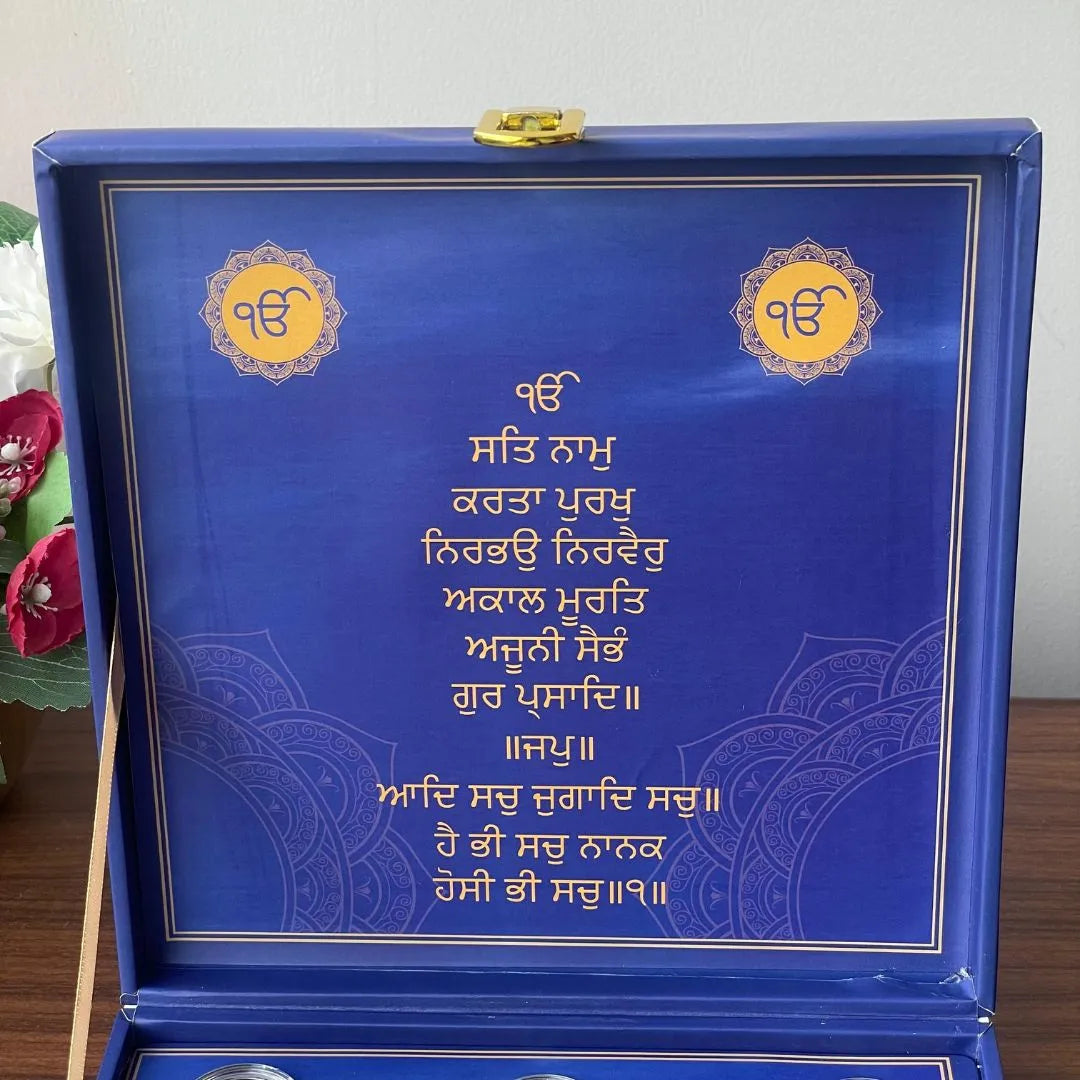 ੴ ੴ
ੴ
ਸਤਿ ਨਾਮੁ
ਕਰਤਾ ਪੁਰਖੁ
ਨਿਰਭਉ ਨਿਰਵੈਰੁ
ਅਕਾਲ ਮੂਰਤਿ
ਅਜੂਨੀ ਸੈਭੰ
ਗੁਰ ਪ੍ਸਾਦਿ॥
॥ਜਪੁ॥
ਆਦਿ ਸਚੁ ਜੁਗਾਦਿ ਸਚੁ॥
ਹੈ ਭੀ ਸਚੁ ਨਾਨਕ
ਹੋਸੀ ਭੀ ਸਚੁ॥੧॥